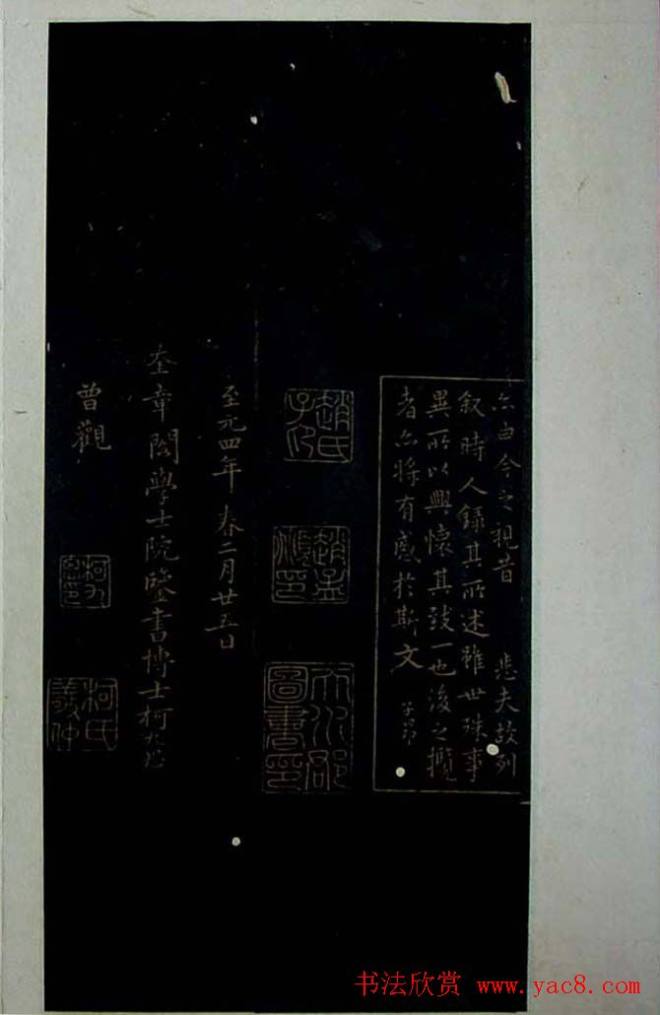 亦由今之視昔 悲夫故列
叙時人録其所述雖世殊事
異所以興懷其致一也後之攬
者亦將有感於斯文 子昂
趙氏子昂
趙孟頫印
天水郡圖書印
至元四年春二月廿五日
奎章閣學士院鑒書博士柯九思
曾觀
柯氏敬仲
书法欣赏 www.yac8.com